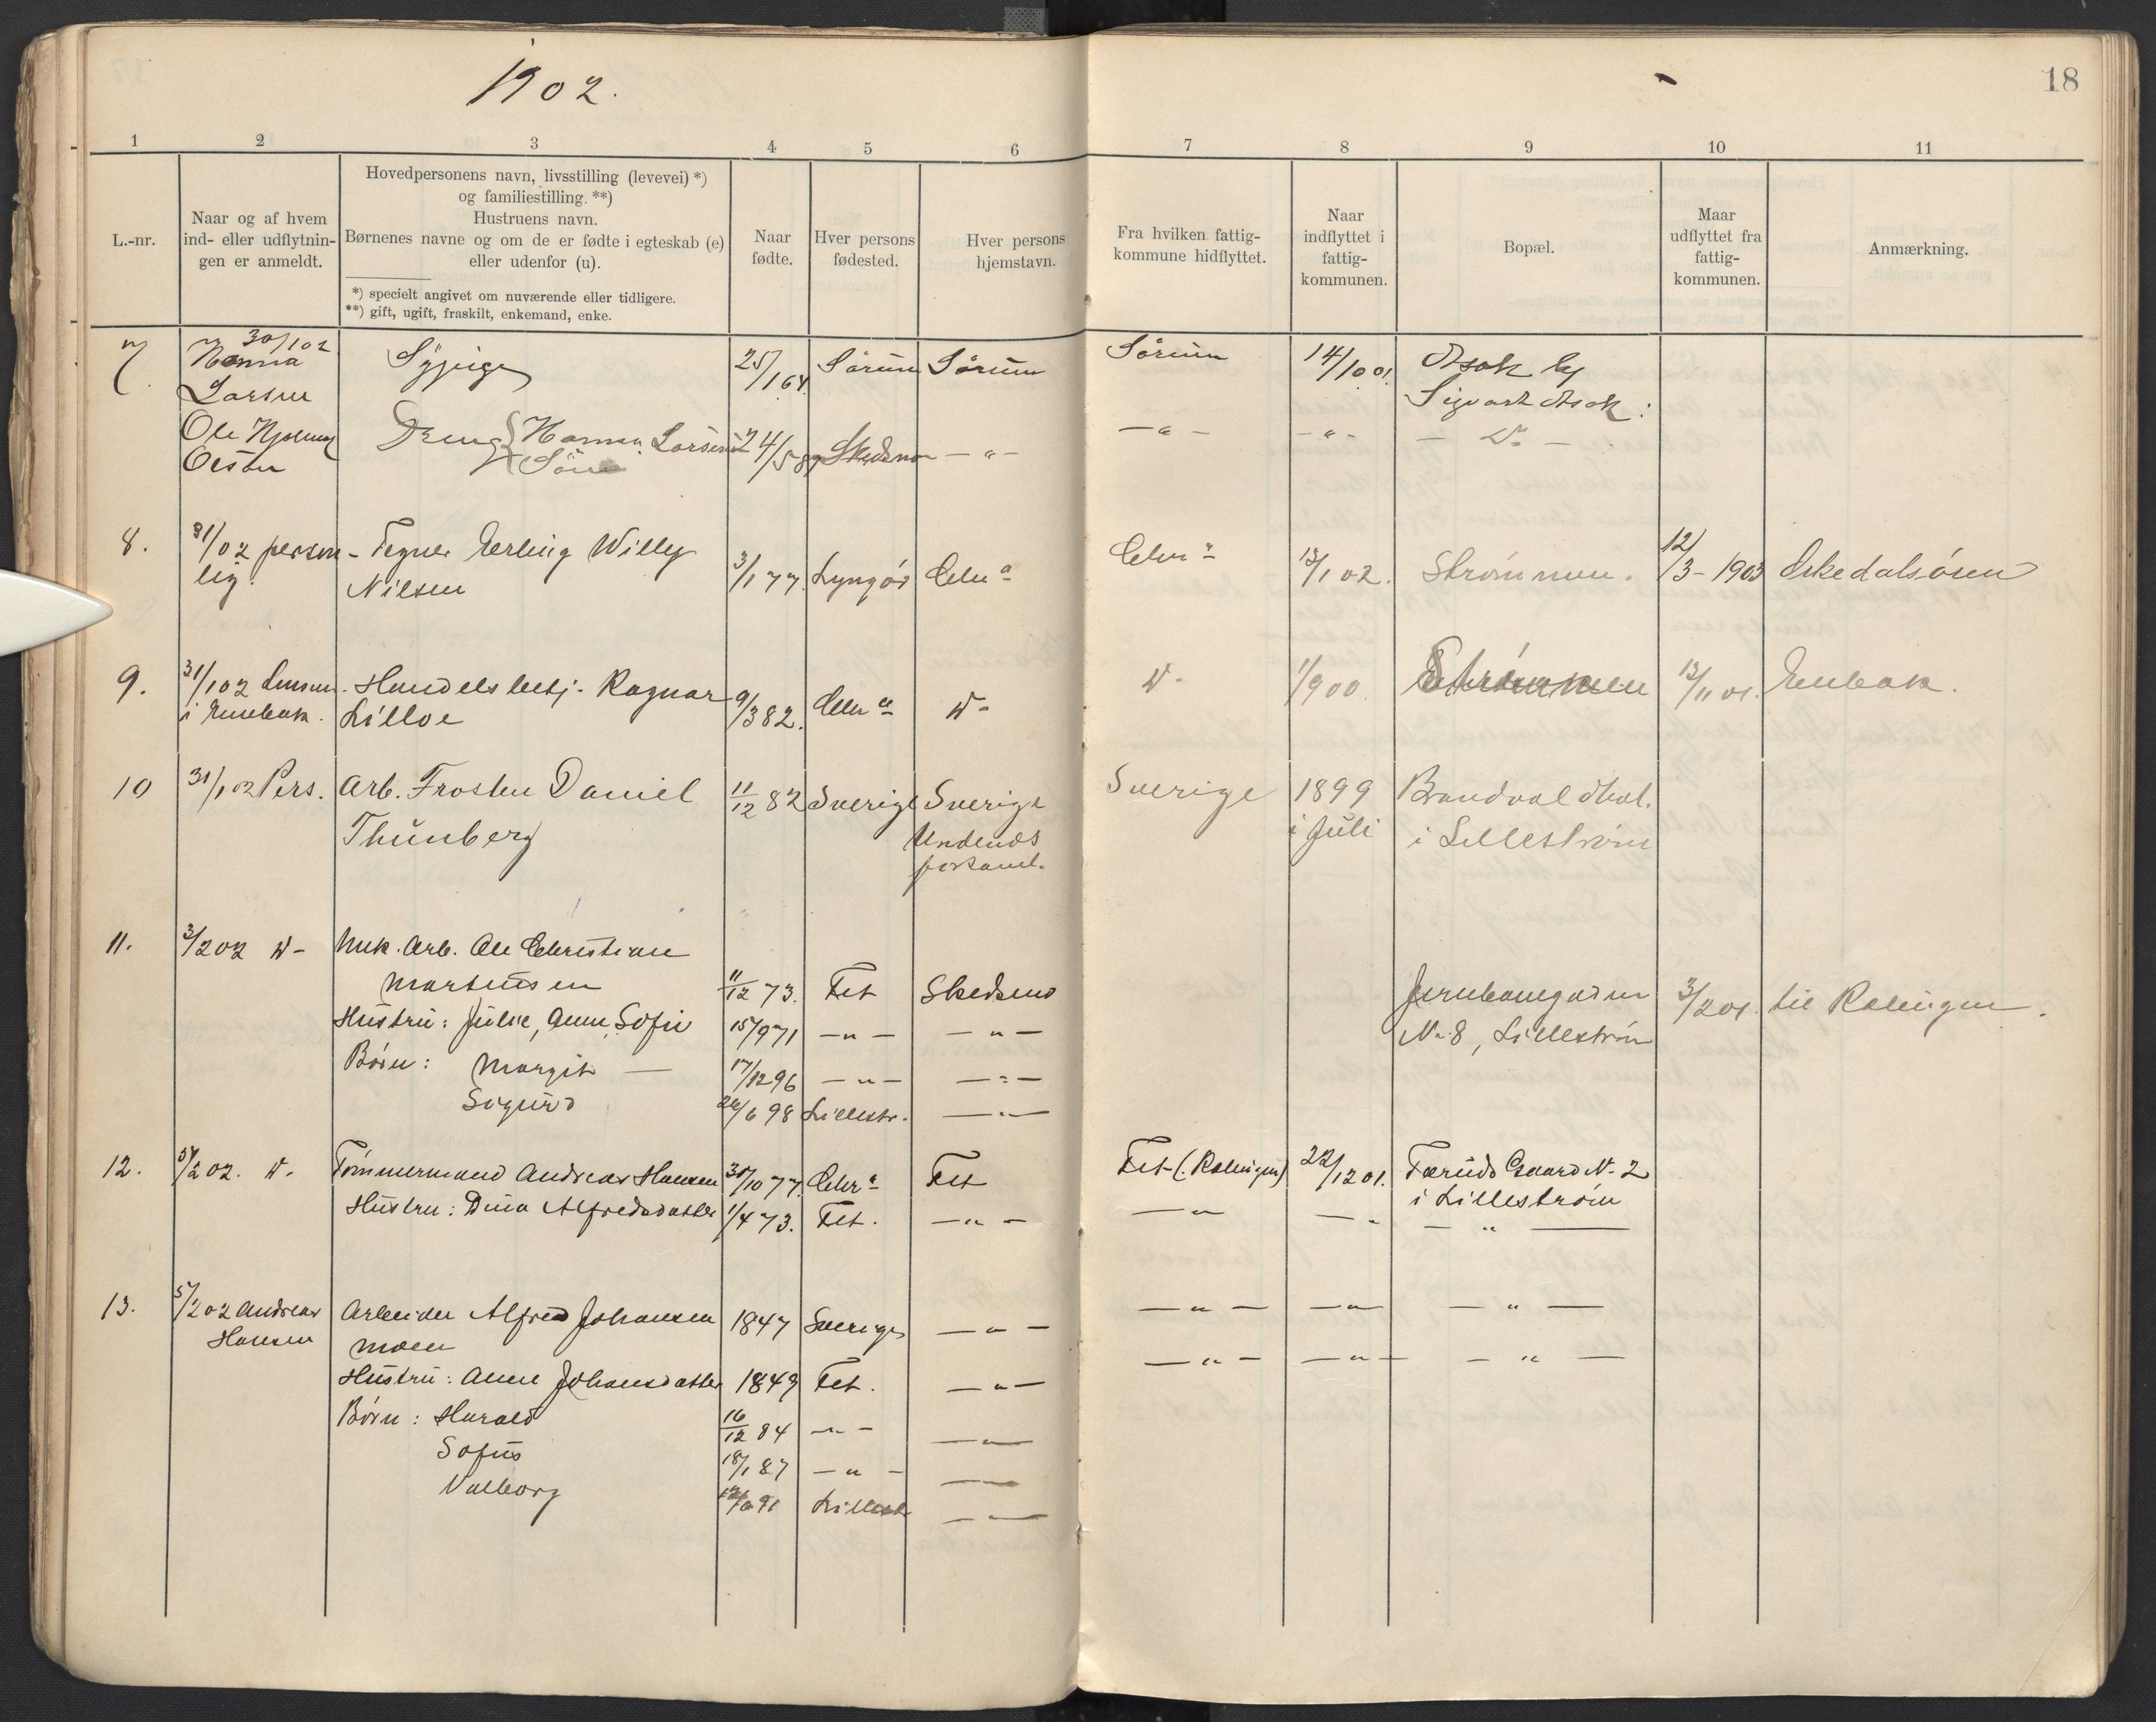 1902.
18
1 2 3 4 5 6 7 8 9 10 11
L.-nr.
Naar og af hvem
ind- eller udflytnin-
gen er anmeldt.
Hovedpersonens navn, livsstilling (levevei) *)
og familiestilling. **)
Hustruens navn.
Børnenes navne og om de er fødte i egteskab (e)
eller udenfor (u).
*) specielt angivet om nuværende eller tidligere.
**) gift, ugift, fraskilt, enkemand, enke.
Naar
fødte.
Hver persons
fødested.
Hver persons
hjemstavn.
Fra hvilken fattig-
kommune hidflyttet.
Naar
indflyttet i
fattig-
kommunen.
Bopæl.
Maar
udflyttet fra
fattig-
kommunen.
Anmærkning.
7. 30/1 02
Hanna Sypige 25/1 64. Sørum Sørum Sørum 14/10 01. Asak hg
Larsen Sigvart Asak:
Ole Hjalmar Dreng Hanna Larsens 24/5 89 Skedsmo — " — — " — — " — — D° —
Olsen Søn
8. 31/1 02 person- Tegner Erling Willy 3/1 77. Lyngør Chr a Chr a 13/1 02. Strømmen. 12/3-1903 Askedalsøren
lig. Nilsen
9. 31/1 02 Lensm. Handelsbetj. Ragnar 9/3 82. Chr a D° D° 1/1 900 Strømmen 13/11 01. Enebak.
i Enebak. Lilloe
10 31/1 02 Pers. Arb. Frosten Daniel 11/12 82 Sverige Sverige Sverige 1899 Brandval
Thunberg Undenäs i Juli i Lillestrøm
forsaml.
11. 3/2 02 D° Ole Christian
Martinsen 11/12 73. Fet Skedsmo Jernbanegaden 3/2 01. til Rælingen.
Hustru: Julie, Anne, Sofie 15/9 71 — " — — " — N. 8, Lillestrøm
Børn: Margit — 17/12 96 — " — — " —
Sigurd 26/6 98 Lillestr. — " —
12. 5/2 02. D° Tømmermand Andreas Hansen 30/10 77. Chr a Fet Fet (Rælingen) 22/12 01. Færuds Gaard N. 2
i Lillestrøm
Hustru: Dina Alfredsdatter 1/4 73. Fet. — " — — " — — " — " —
13. 5/2 02 Andreas Arbeider Alfred Johansen 1847 Sverige — " — — " — — " — — " —
Hansen Moen
Hustru: Anne Johansdatter 1849 Fet. — " — — " — — " — — " —
Børn: Harald 16/12 84 — " — — " —
Sofus 18/1 87 — " — — " —
Valborg 12/6 91 Lillestr — " —